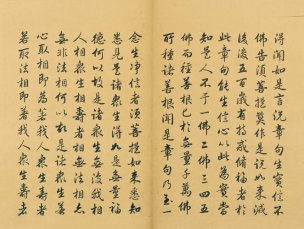 得聞如是言說章句生實信不
佛告須菩提莫作是說如來滅
後後五百歲有持戒修福者於
此章句能生信心以此為實當
知是人不于一佛二佛三四五
佛而種善根已於無量千萬佛
所種諸善根聞是章句乃至一
念生淨信者須菩提如來悉知
悉見是諸眾生得如是無量福
德何以故是諸眾生無復我相
人相眾生相壽者相無法相亦
無非法相何以故是諸眾生若
心取相即為著我人眾生壽者
若取法相即著我人眾生壽者